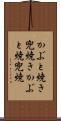 かぶと焼き
兜焼きかぶ
と焼兜焼